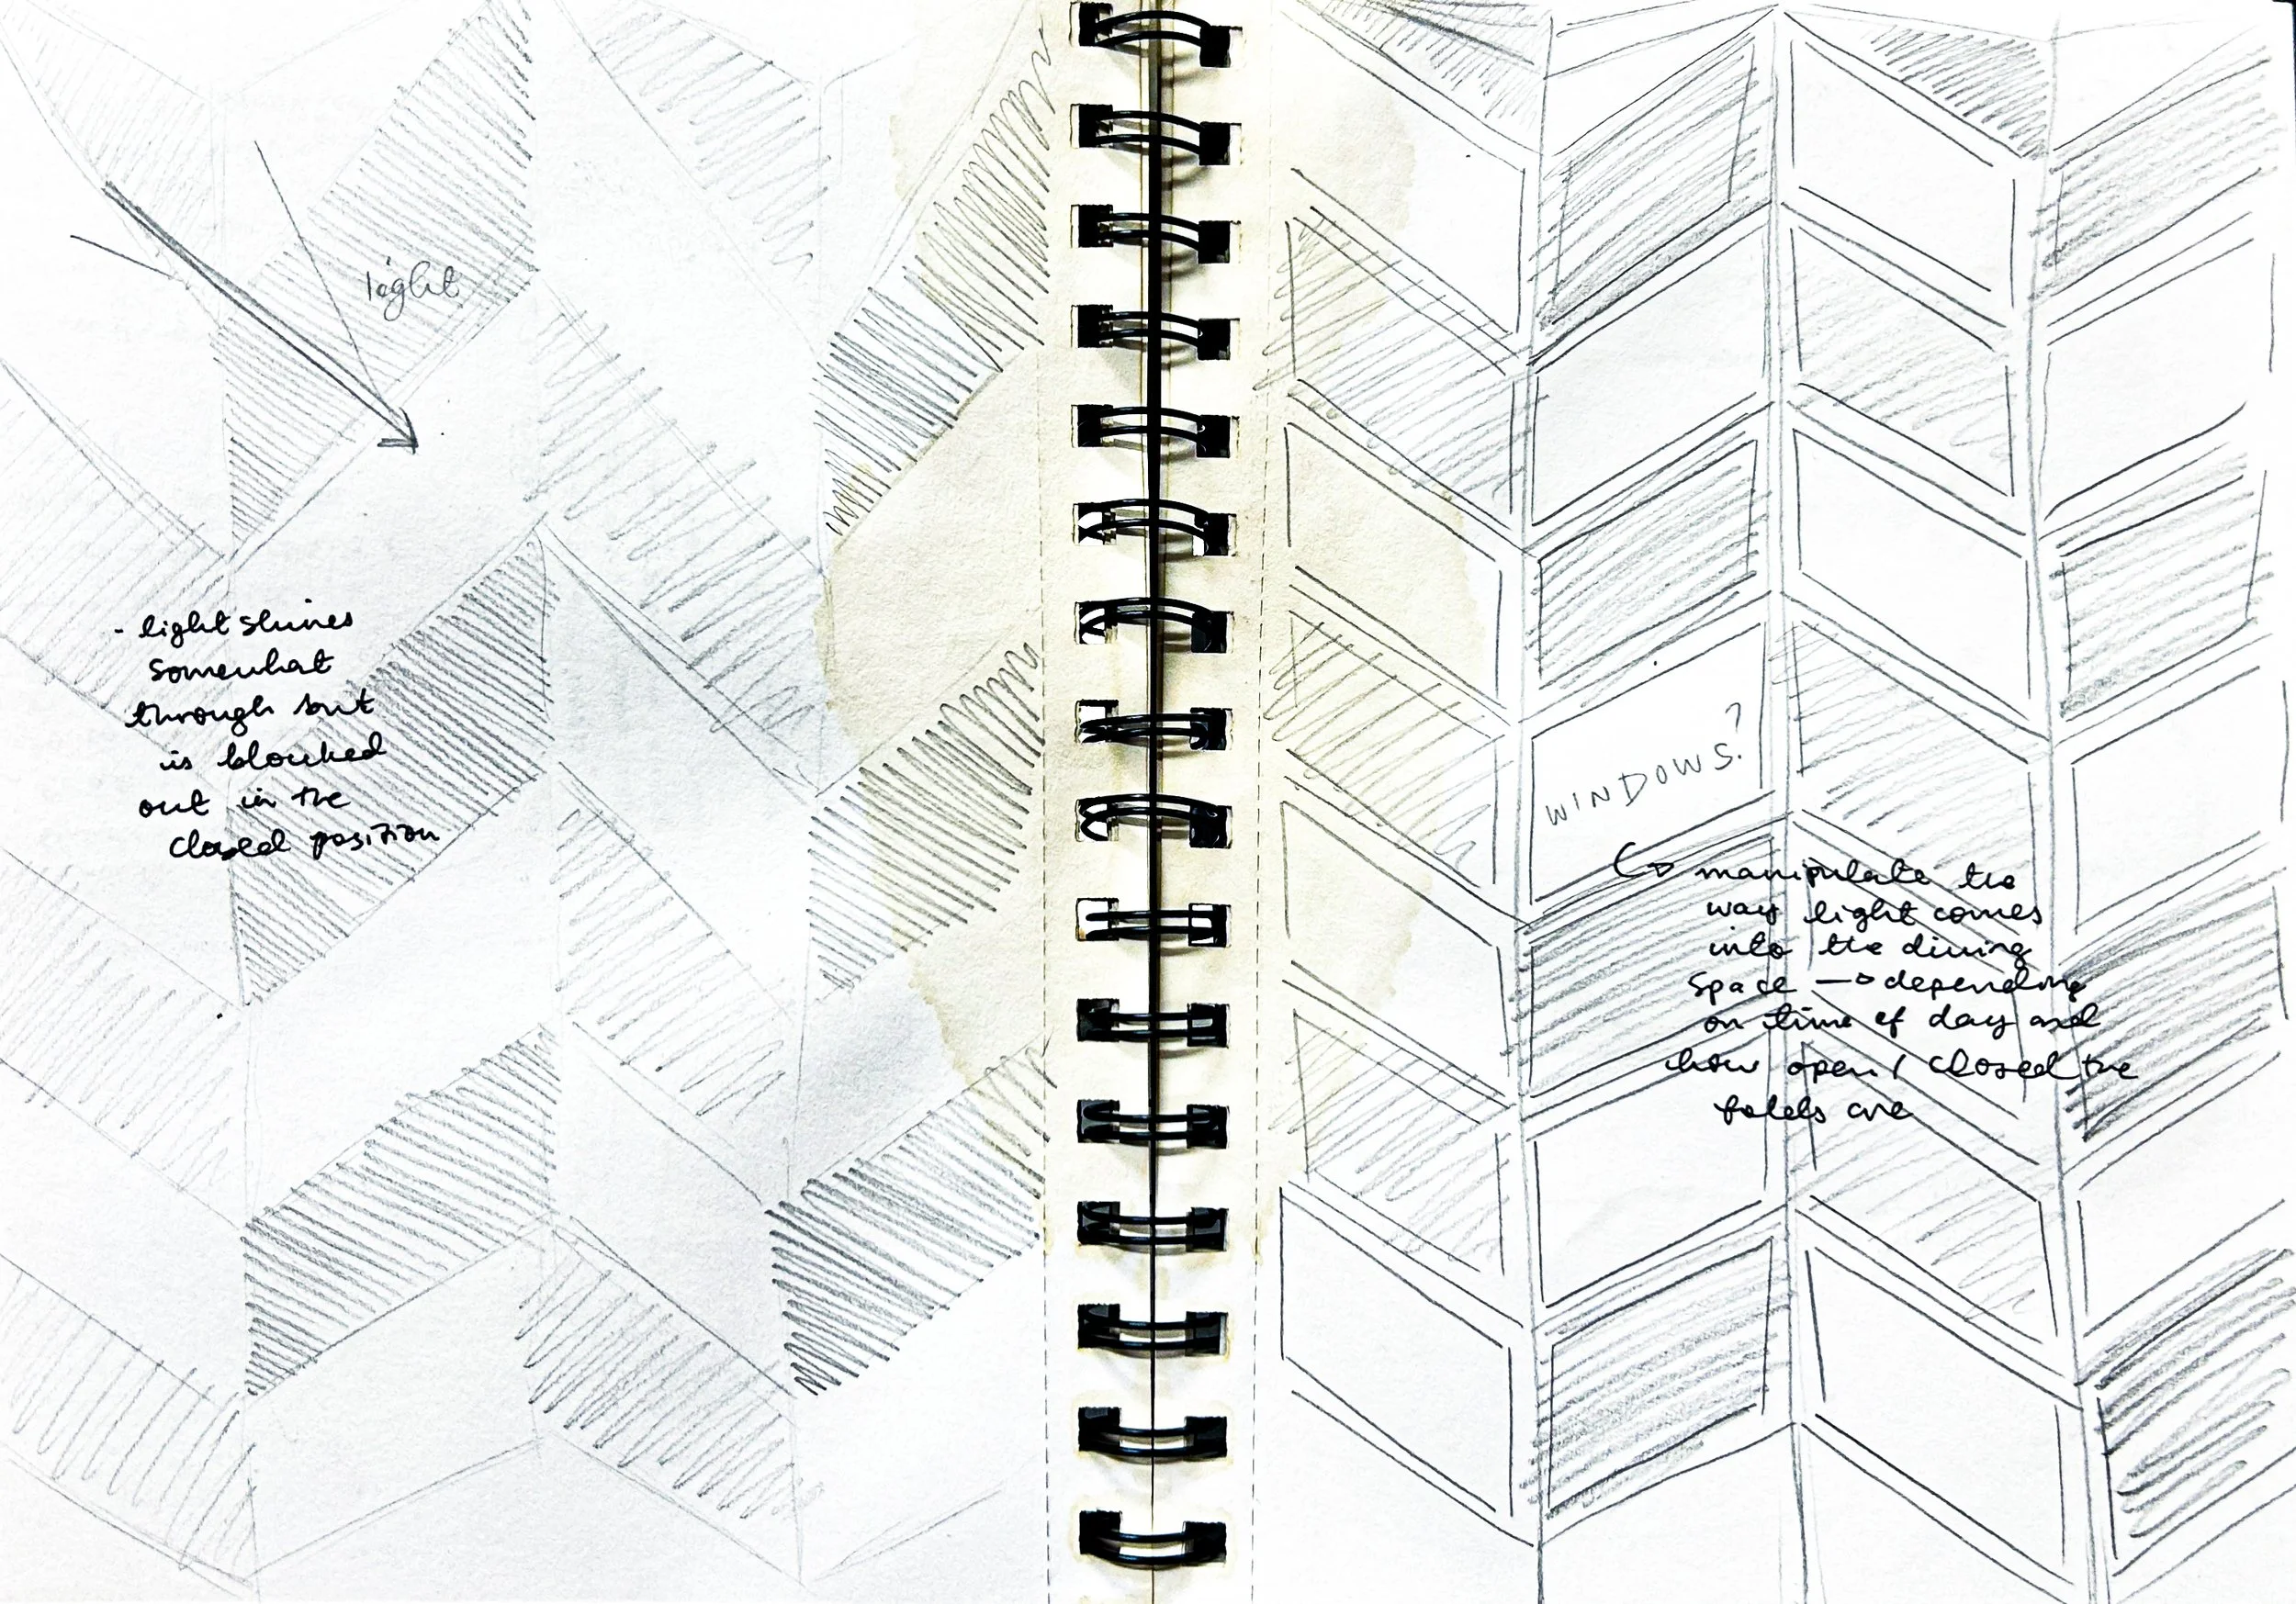 light
- light shines
somewhat
through but
is blocked
out in the
closed position
WINDOWS?
manipulate the
way light comes
into the dining
space → depending
on time of day and
how open / closed the
folds are